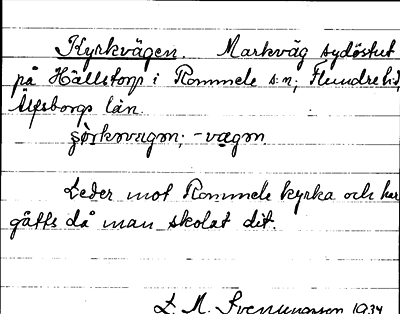 Kyrkvägen. Markväg sydöstut
på Hällstorp i Rommele s:n, Flundre hd,
Älfsborgs län.
Leder mot Rommele kyrka och har
gåtts då man skolat dit.
L. M. Svenungsson 1934